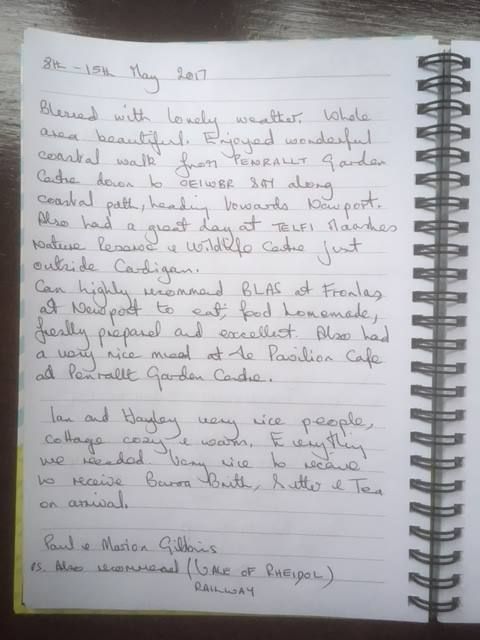 8th - 15th May 2017
Blessed with lovely weather. Whole
area beautiful. Enjoyed wonderful
coastal walk from PENRALLT Garden
Centre down to along
coastal path, heading towards Newport.
Also had a great day at TELFI Marshes
Nature Reserve & Wildlife Centre just
outside Cardigan.
Can highly recommend BLAS at Fronlas
at Newport to eat; food homemade,
freshly prepared and excellent. Also had
a very nice meal at the Pavilion Cafe
at Penrallt Garden Centre.
Ian and Hayley very nice people,
cottage cozy & warm. Everything
we needed. Very nice to receive
to receive Bara Brith, & Tea
on arrival.
Paul & Marion
PS. Also recommend (VALE OF RHEIDOL)
RAILWAY